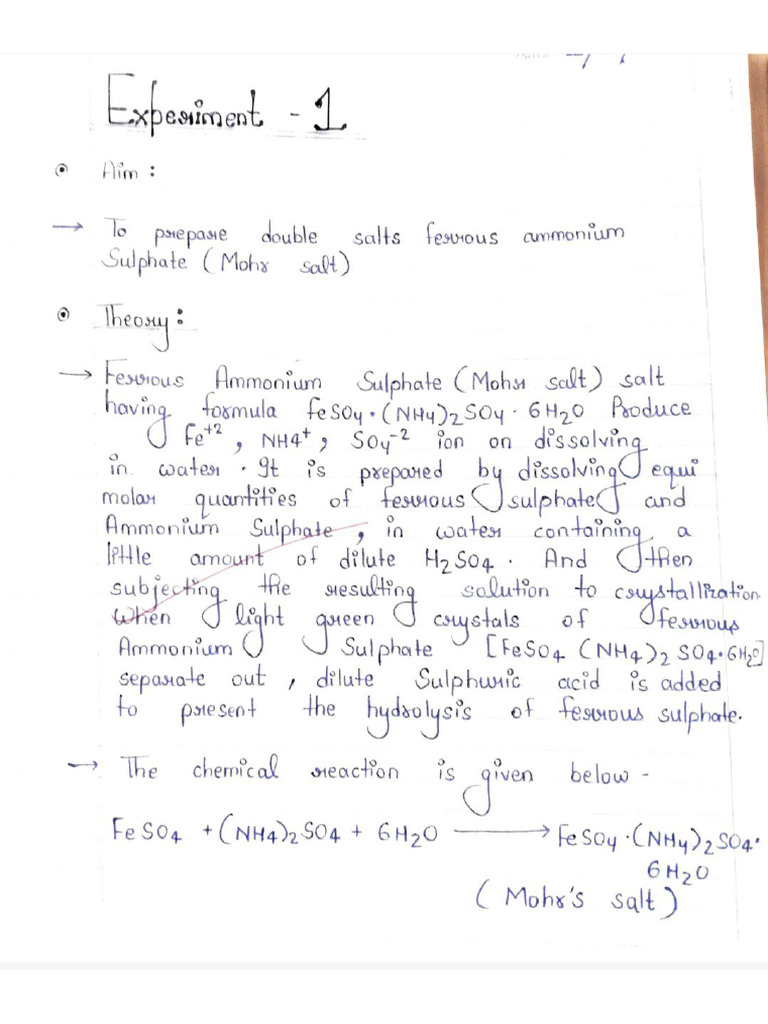 Experiment - 1
Aim :
→ To prepare double salts ferrous ammonium
Sulphate (Mohr salt)
Theory :
→ Ferrous Ammonium Sulphate (Mohr salt) salt
having formula FeSO4·(NH4)2SO4·6H2O Produce
Fe+2, NH4+, SO4-2 ion on dissolving
in water. It is prepared by dissolving equi
molar quantities of ferrous sulphate and
Ammonium Sulphate, in water containing a
little amount of dilute H2SO4. And then
subjecting the resulting solution to crystallization
When light green crystals of ferrous
Ammonium Sulphate [FeSO4 (NH4)2 SO4·6H2O]
separate out, dilute Sulphuric acid is added
to present the hydrolysis of ferrous sulphate.
→ The chemical reaction is given below -
FeSO4 + (NH4)2SO4 + 6H2O → FeSO4·(NH4)2SO4·
6H2O
(Mohr's salt)